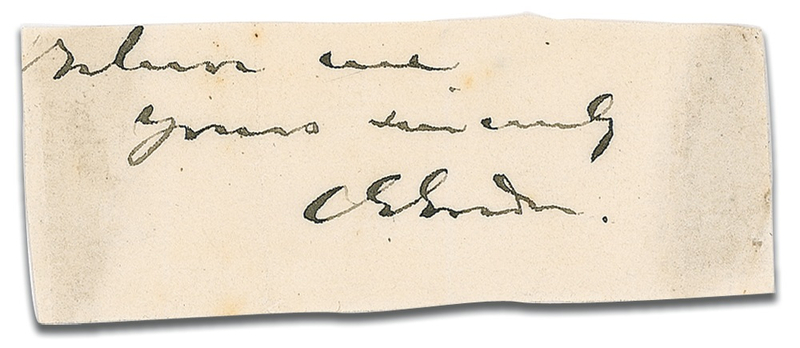 Believe me
Yours sincerely
C E Gordon.